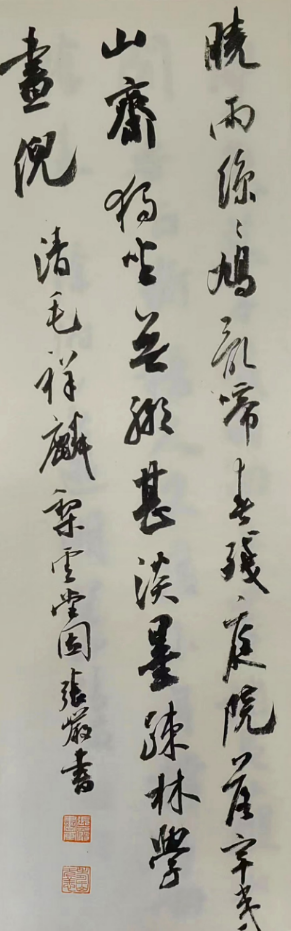 曉雨絲々鳩亂啼春殘庭院落辛夷
山齋獨坐無聊甚淡墨疎林學
畫倪
清毛祥麟梨雲堂張嚴書